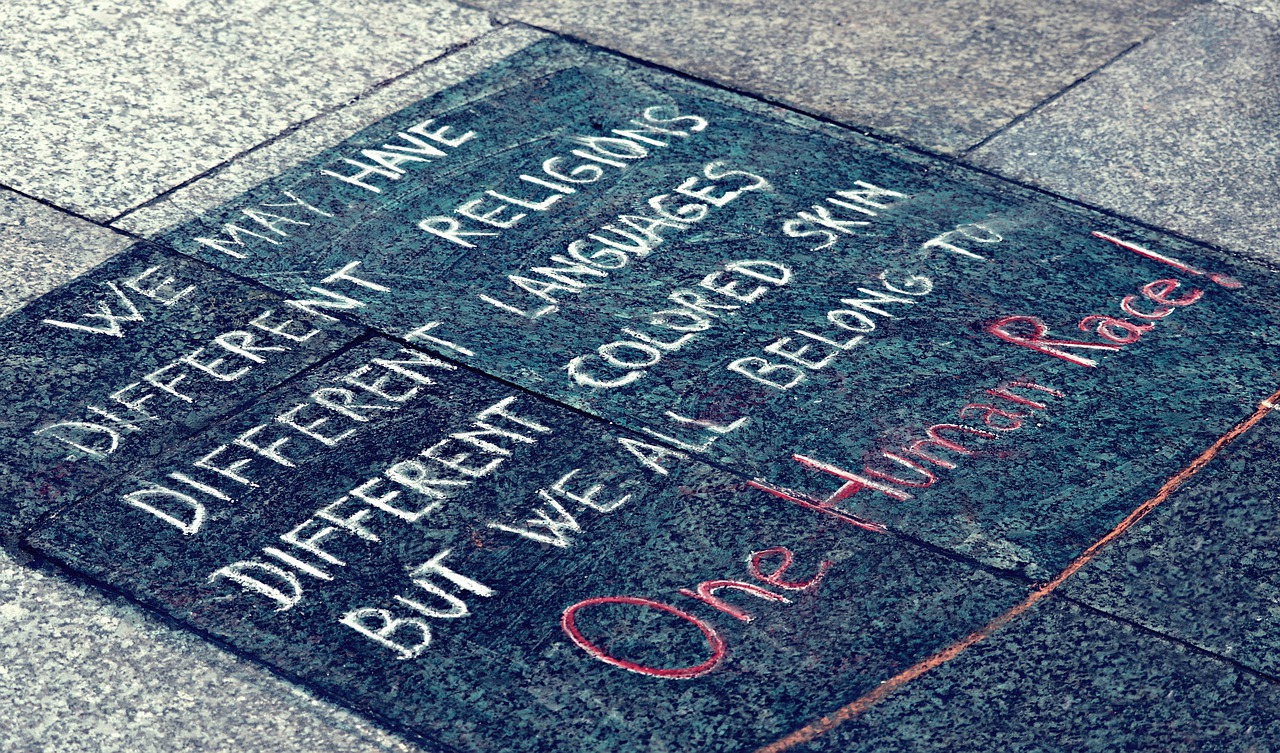 WE MAY HAVE
DIFFERENT RELIGIONS
DIFFERENT LANGUAGES
DIFFERENT COLORED SKIN
BUT WE ALL BELONG TO
One Human Race!